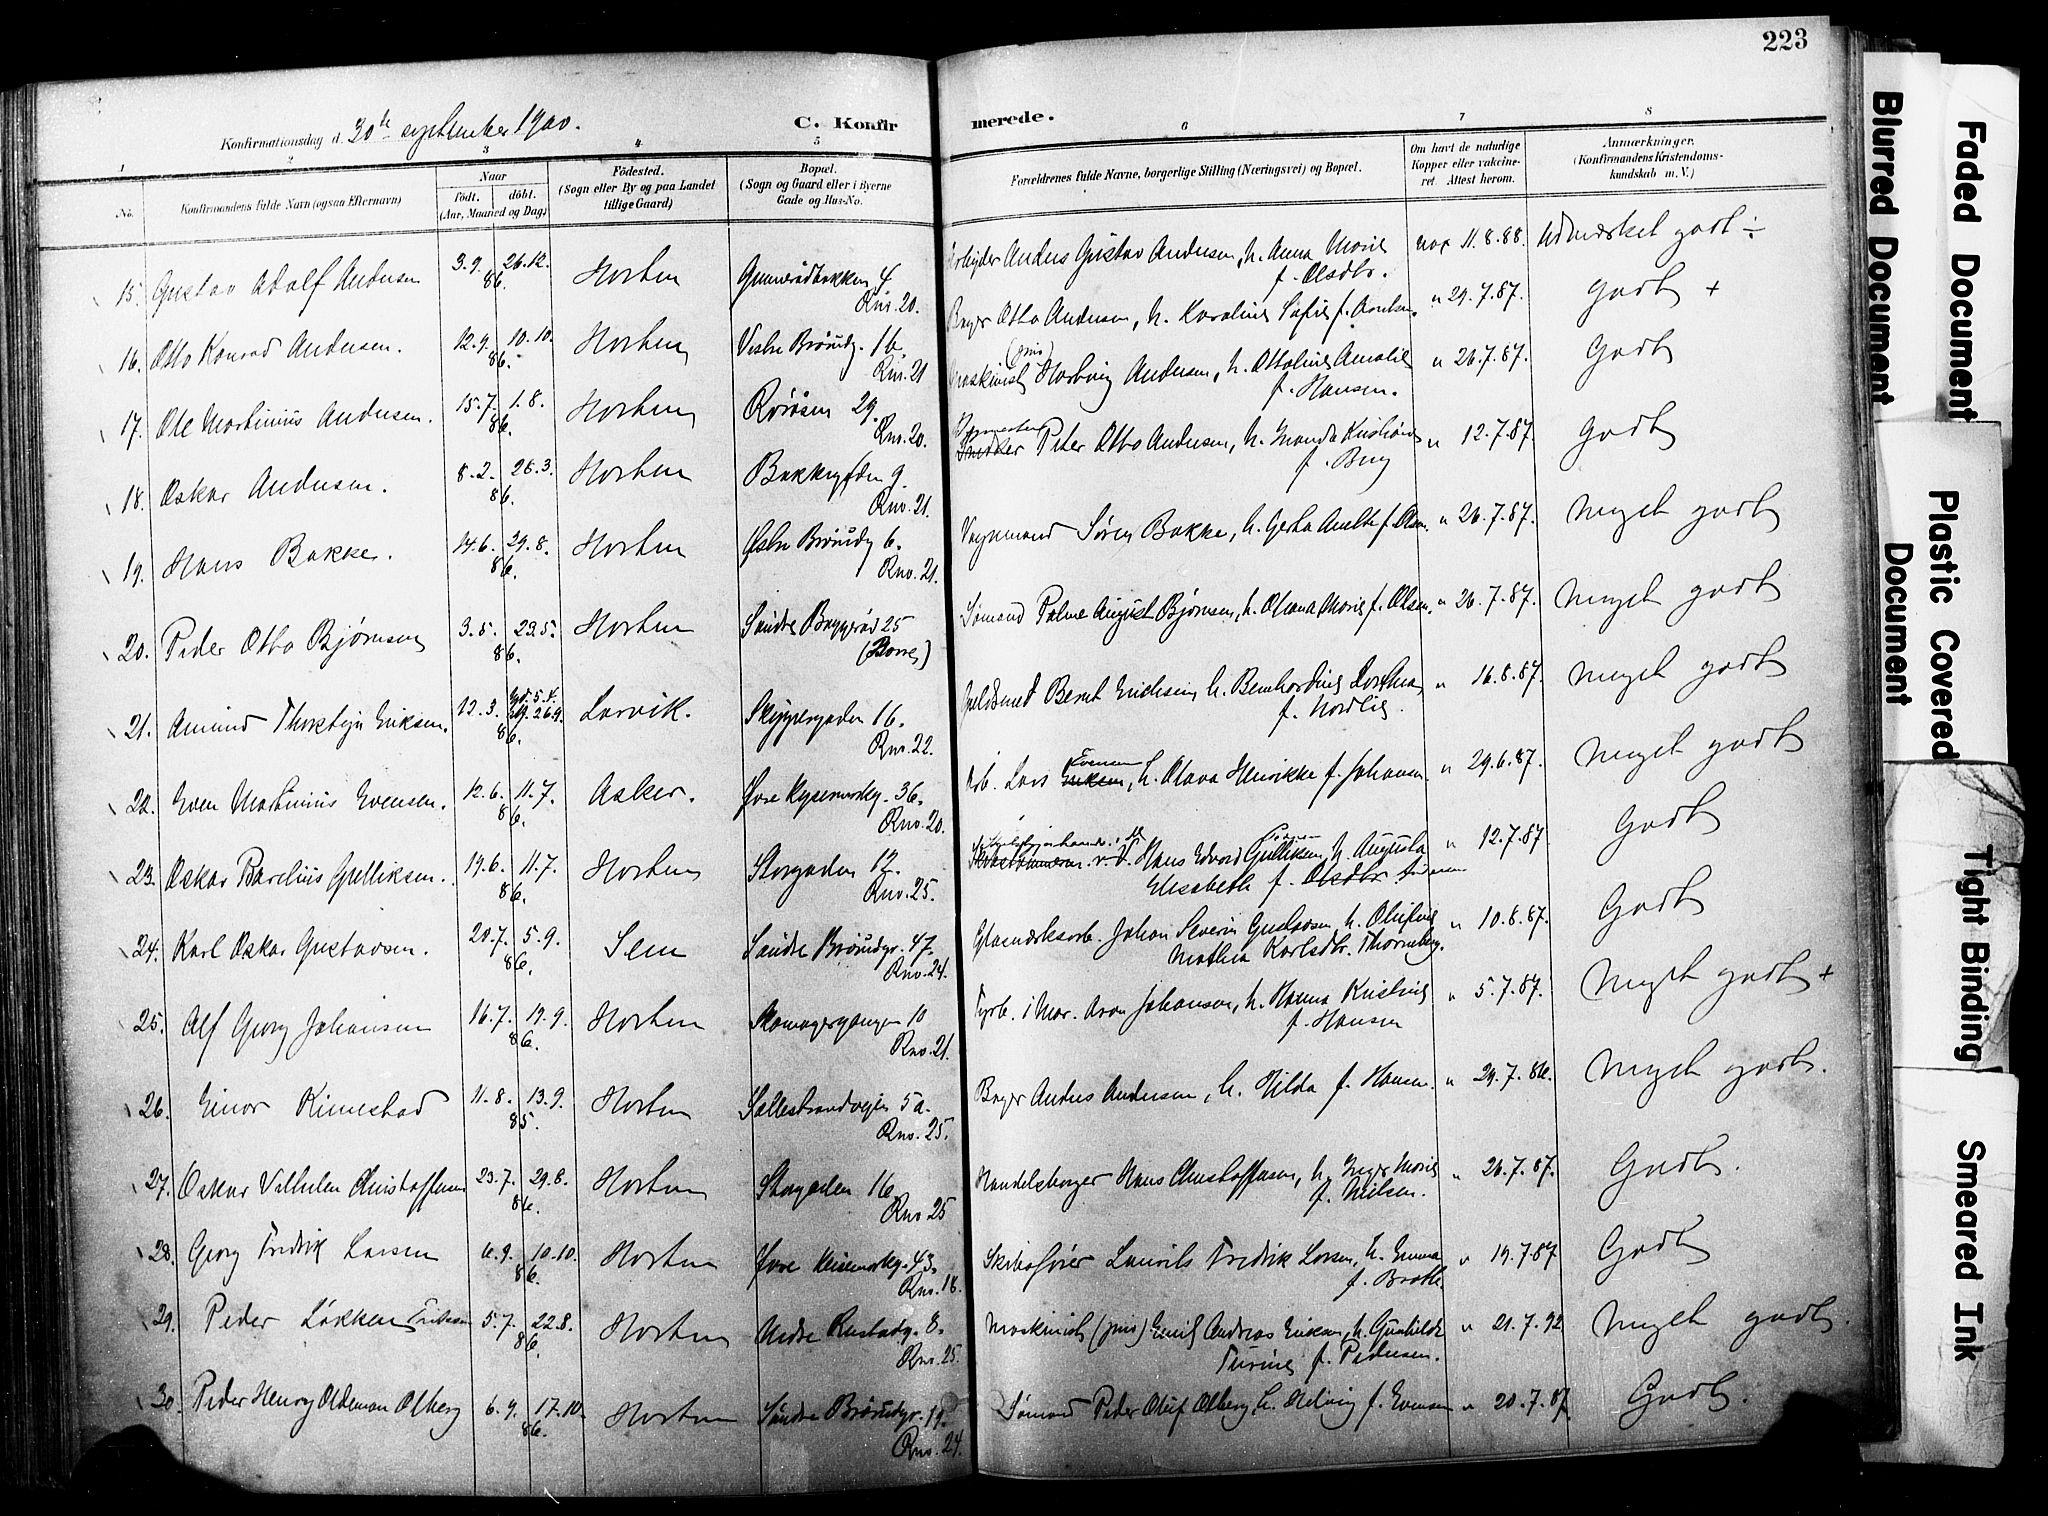 223
Konfirmationsdag d. 30te september 1900.
C. Konfirmerede.
1 2 3 4 5 6 7 8
No.
Konfirmandens fulde Navn (ogsaa Efternavn)
Naar
Født. døbt.
(Aar, Maaned og Dag)
Fødested.
(Sogn eller By og paa Landet
tillige Gaard)
Bopæl.
(Sogn og Gaard eller i Byerne
Gade og Hus-No.
Forældrenes fulde Navne, borgerlige Stilling (Næringsvei) og Bopæl.
Om havt de naturlige
Kopper eller vakcine-
ret. Attest herom.
Anmærkninger.
(Konfirmandens Kristendoms-
kundskab m. V.)
15. Gustav Adolf Andersen 3.9. 26.12. 86. Horten 4 Rnv. 20.
Arbeider Anders Gustav Andersen, h. Anna Marie f. Olsdtr. vax 11.8.88. Udmærket godt ÷
16. Otto Konrad Andersen. 12.9. 10.10. 86. Horten Vestre Brårudg. 16. Rnv. 21
Bager Otto Andersen, h. Karoline Sofie f. Arntsen. " 29.7.87. Godt +
17. Ole Martinius Andersen. 15.7. 1.8. 86. Horten Rørosen 29. Rnv. 20.
Maskinist (pens) Hartvig Andersen, h. Ottoline Amalie f. Hansen. " 26.7.87. Godt
18. Oskar Andersen. 8.2. 28.3. 86. Horten Bakkegaden 9. Rnv. 21.
Peter Otto Andersen, h. Manda Kristiane f. Berg " 12.7.87. Godt
19. Hans Bakke. 14.6. 29.8. 86. Horten Østre Brårudg 6. Rnv. 21.
Vognmand Søren Bakke, h. Gerta Anette f. Olsen. " 26.7.87. Meget godt
20. Peder Otto Bjørnsen 3.5. 23.5. 86. Horten Søndre Baggerød 25 (Borre)
Sømand Palme August Bjørnsen, h. Olava Marie f. Olsen. " 26.7.87. Meget godt
21. Amund Thorstein Eriksen. 12.3. 5.4. 26.9. 86. Larvik. Skippergaden 16. Rnv. 22.
Guldsmed Bernt Erichsen, h. Bernhardine Dorthea f. Nordlie. " 16.8.87. Meget godt
22. Even Martinius Evensen. 12.6. 11.7. 86. Asker. Øvre Keisemarkg. 36. Rnv. 20.
Arb. Lars Eriksen Evensen, h. Olava Henrikke f. Johansen " 29.6.87. Meget godt
23. Oskar Barelius Gulliksen. 19.6. 11.7. 86. Horten Storgaden 12. Rnv. 25.
Hans Edvard Gulliksen, h. Augusta Elisabeth f. Olsdtr. Andersen " 12.7.87 Godt
24. Karl Oskar Gustavsen. 20.7. 5.9. 86. Sem Søndre Brårudgr. 47. Rnv. 24.
Glasværksarb. Johan Severin Gustavsen h. Olufine Mathea Karlsdtr. Thorneberg. " 10.8.87. Godt
25. Alf Georg Johansen 16.7. 19.9. 86. Horten Skomagergangen 10 Rnv. 21.
Fyrb. i Mar. Aron Johansen, h. Hanna Kristine f. Hansen " 5.7.87. Meget godt +
26. Einar Kimestad 11.8. 13.9. 85. Horten Falkestrandveien 5a. Rnv. 25.
Bager Anders Andersen, h. Hilda f. Hansen. " 29.7.86. Meget godt.
27. Oskar Vilhelm Christoffersen 23.7. 29.8. 86. Horten Storgaden 16 Rnv 25
Handelsborger Hans Christoffersen, h. Inger Marie f. Nielsen. " 26.7.87. Godt.
28. Georg Fredrik Larsen 6.9. 10.10. 86. Horten Øvre Keisemarkg. 43. Rnv. 18.
Skibsfører Laurits Fredrik Larsen, h. Emma f. Bratli. " 19.7.87 Godt
29. Peder Løkken Eriksen 5.7. 22.8. 86. Horten Nedre Rustadg. 8. Rnv. 25.
Maskinist (pens) Emil Andreas Eriksen, h. Gunhilde Turine f. Pedersen. " 21.7.92 Meget godt.
30. Peder Henry Oldeman Olberg 6.9. 17.10. 86. Horten Søndre Brårudgr. 19. Rnv. 24.
Sømand Peder Oluf Olberg, h. Helvig f. Evensen " 20.7.87. Godt.
Faded Document
Blurred Document
Plastic Covered
Document
Tight Binding
Smeared Ink